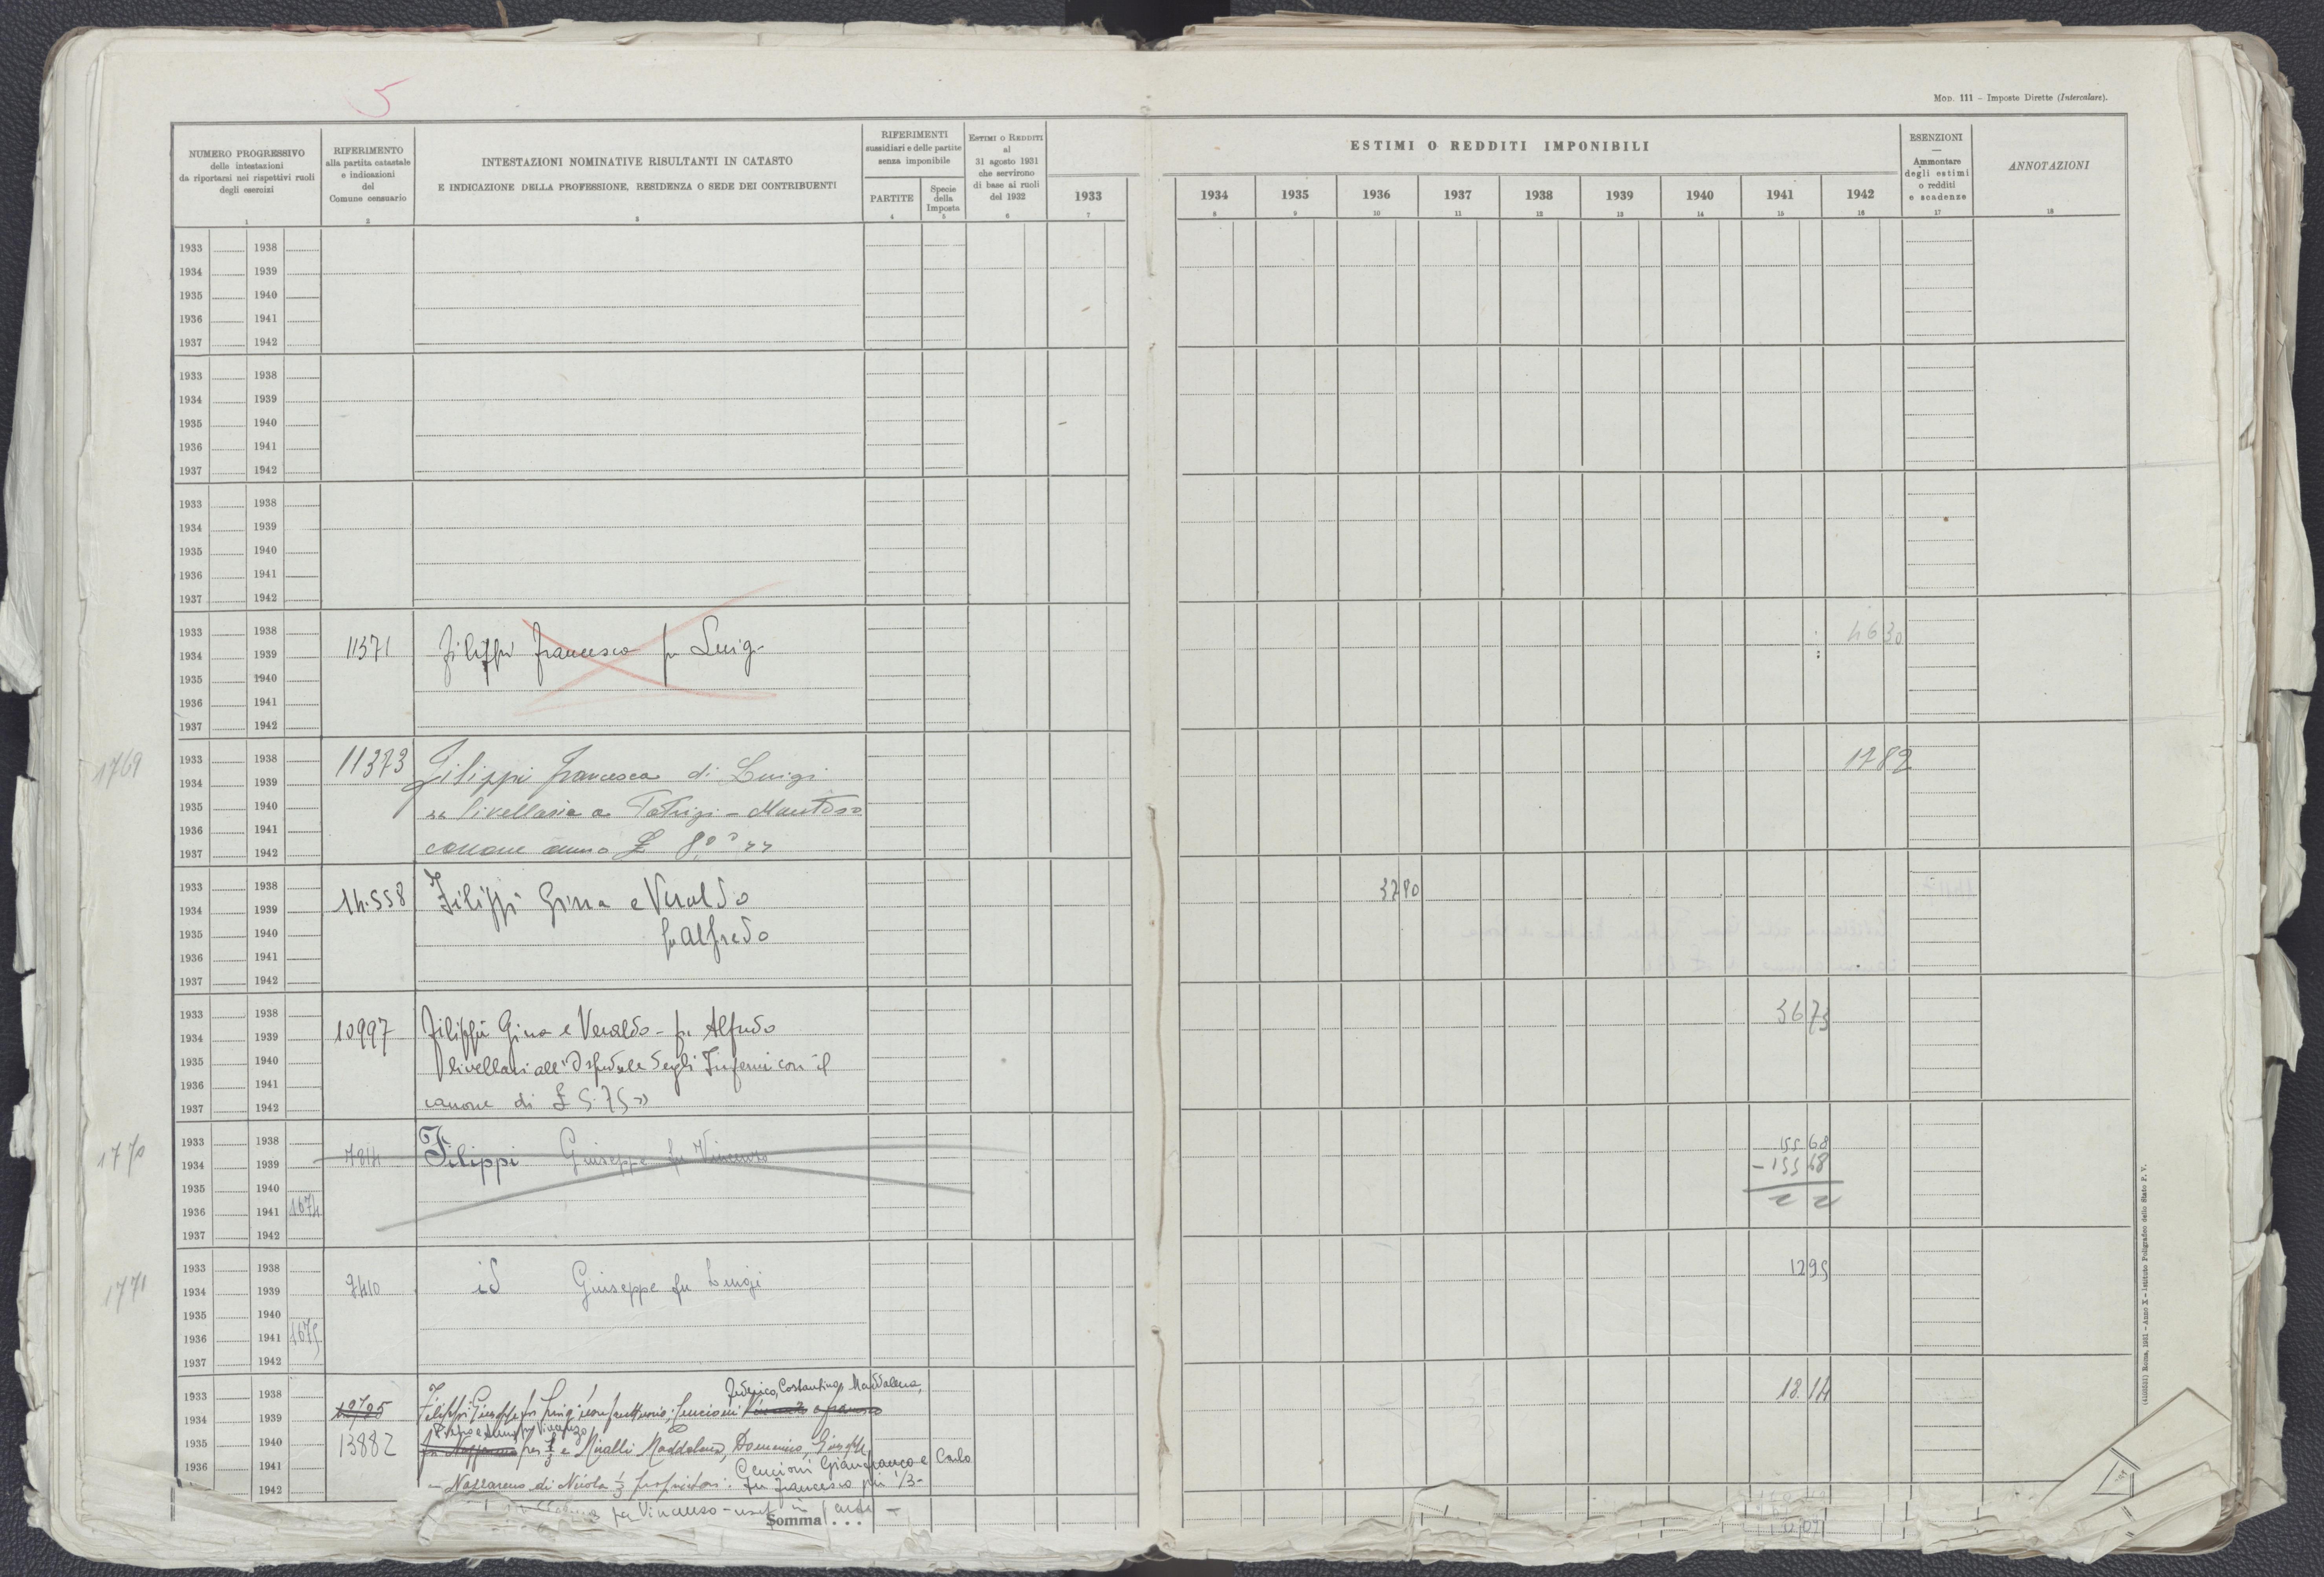 5
Mod. 111 – Imposte Dirette (Intercalare).
NUMERO PROGRESSIVO
delle intestazioni
da riportarsi nei rispettivi ruoli
degli esercizi
1
RIFERIMENTO
alla partita catastale
e indicazioni
del
Comune censuario
2
INTESTAZIONI NOMINATIVE RISULTANTI IN CATASTO
E INDICAZIONE DELLA PROFESSIONE, RESIDENZA O SEDE DEI CONTRIBUENTI
3
RIFERIMENTI
sussidiari e delle partite
senza imponibile
PARTITE
4
Specie
della
Imposta
5
Estimi o Redditi
al
31 agosto 1931
che servirono
di base ai ruoli
del 1932
6
ESTIMI O REDDITI IMPONIBILI
1933 1934 1935 1936 1937 1938 1939 1940 1941 1942
7 8 9 10 11 12 13 14 15 16
ESENZIONI
—
Ammontare
degli estimi
o redditi
e scadenze
17
ANNOTAZIONI
18
1933 1938
1934 1939
1935 1940
1936 1941
1937 1942
1933 1938
1934 1939
1935 1940
1936 1941
1937 1942
1933 1938
1934 1939
1935 1940
1936 1941
1937 1942
1933 1938 4630
1934 1939 11371 Filippi Francesco fu Luigi
1935 1940
1936 1941
1937 1942
1769 1933 1938 11373 Filippi Francesco di Luigi 1782
1934 1939
1935 1940 livellario a Patrizi – Montoro
1936 1941
1937 1942 canone annuo £
1933 1938 3780
1934 1939 14.558 Filippi Gina e Veraldo
1935 1940 fu Alfredo
1936 1941
1937 1942
1933 1938 3673
1934 1939 10997 Filippi Gina e Veraldo – fu Alfredo
1935 1940 livellari all'Ospedale degli Infermi con il
1936 1941
1937 1942 canone di £ 5.75
1770 1933 1938 155 68
1934 1939 Filippi Giuseppe fu Vincenzo – 155 68
1935 1940
1936 1941 1674
1937 1942
1771 1933 1938 1295
1934 1939 7410 id Giuseppe fu Luigi
1935 1940
1936 1941 1675
1937 1942
1933 1938 Federico, Costantino, Maddalena, 1814
1934 1939 10725 Filippi Giuseppe fu Luigi
1935 1940 13882 e Miralli Maddalena, Domenico, Giuseppe
1936 1941 Cencioni Gianfranco e Carlo
1942 Nazzareno di Nicola 1/3 proprietari. fu Francesco per 1/3 –
fu Vincenzo – usuf. in parte –
Somma . . .
(4105532) Roma, 1931 – Anno X – Istituto Poligrafico dello Stato P. V.